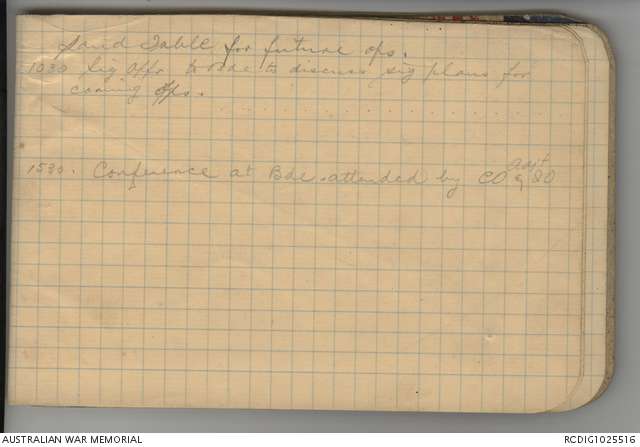 Sand Table for future ops.
1030 Sig Offr to Bde to discuss sig plans for
coming Ops.
1530. Conference at Bde attended by CO adjt & IO
AUSTRALIAN WAR MEMORIAL
RCDIG1025516